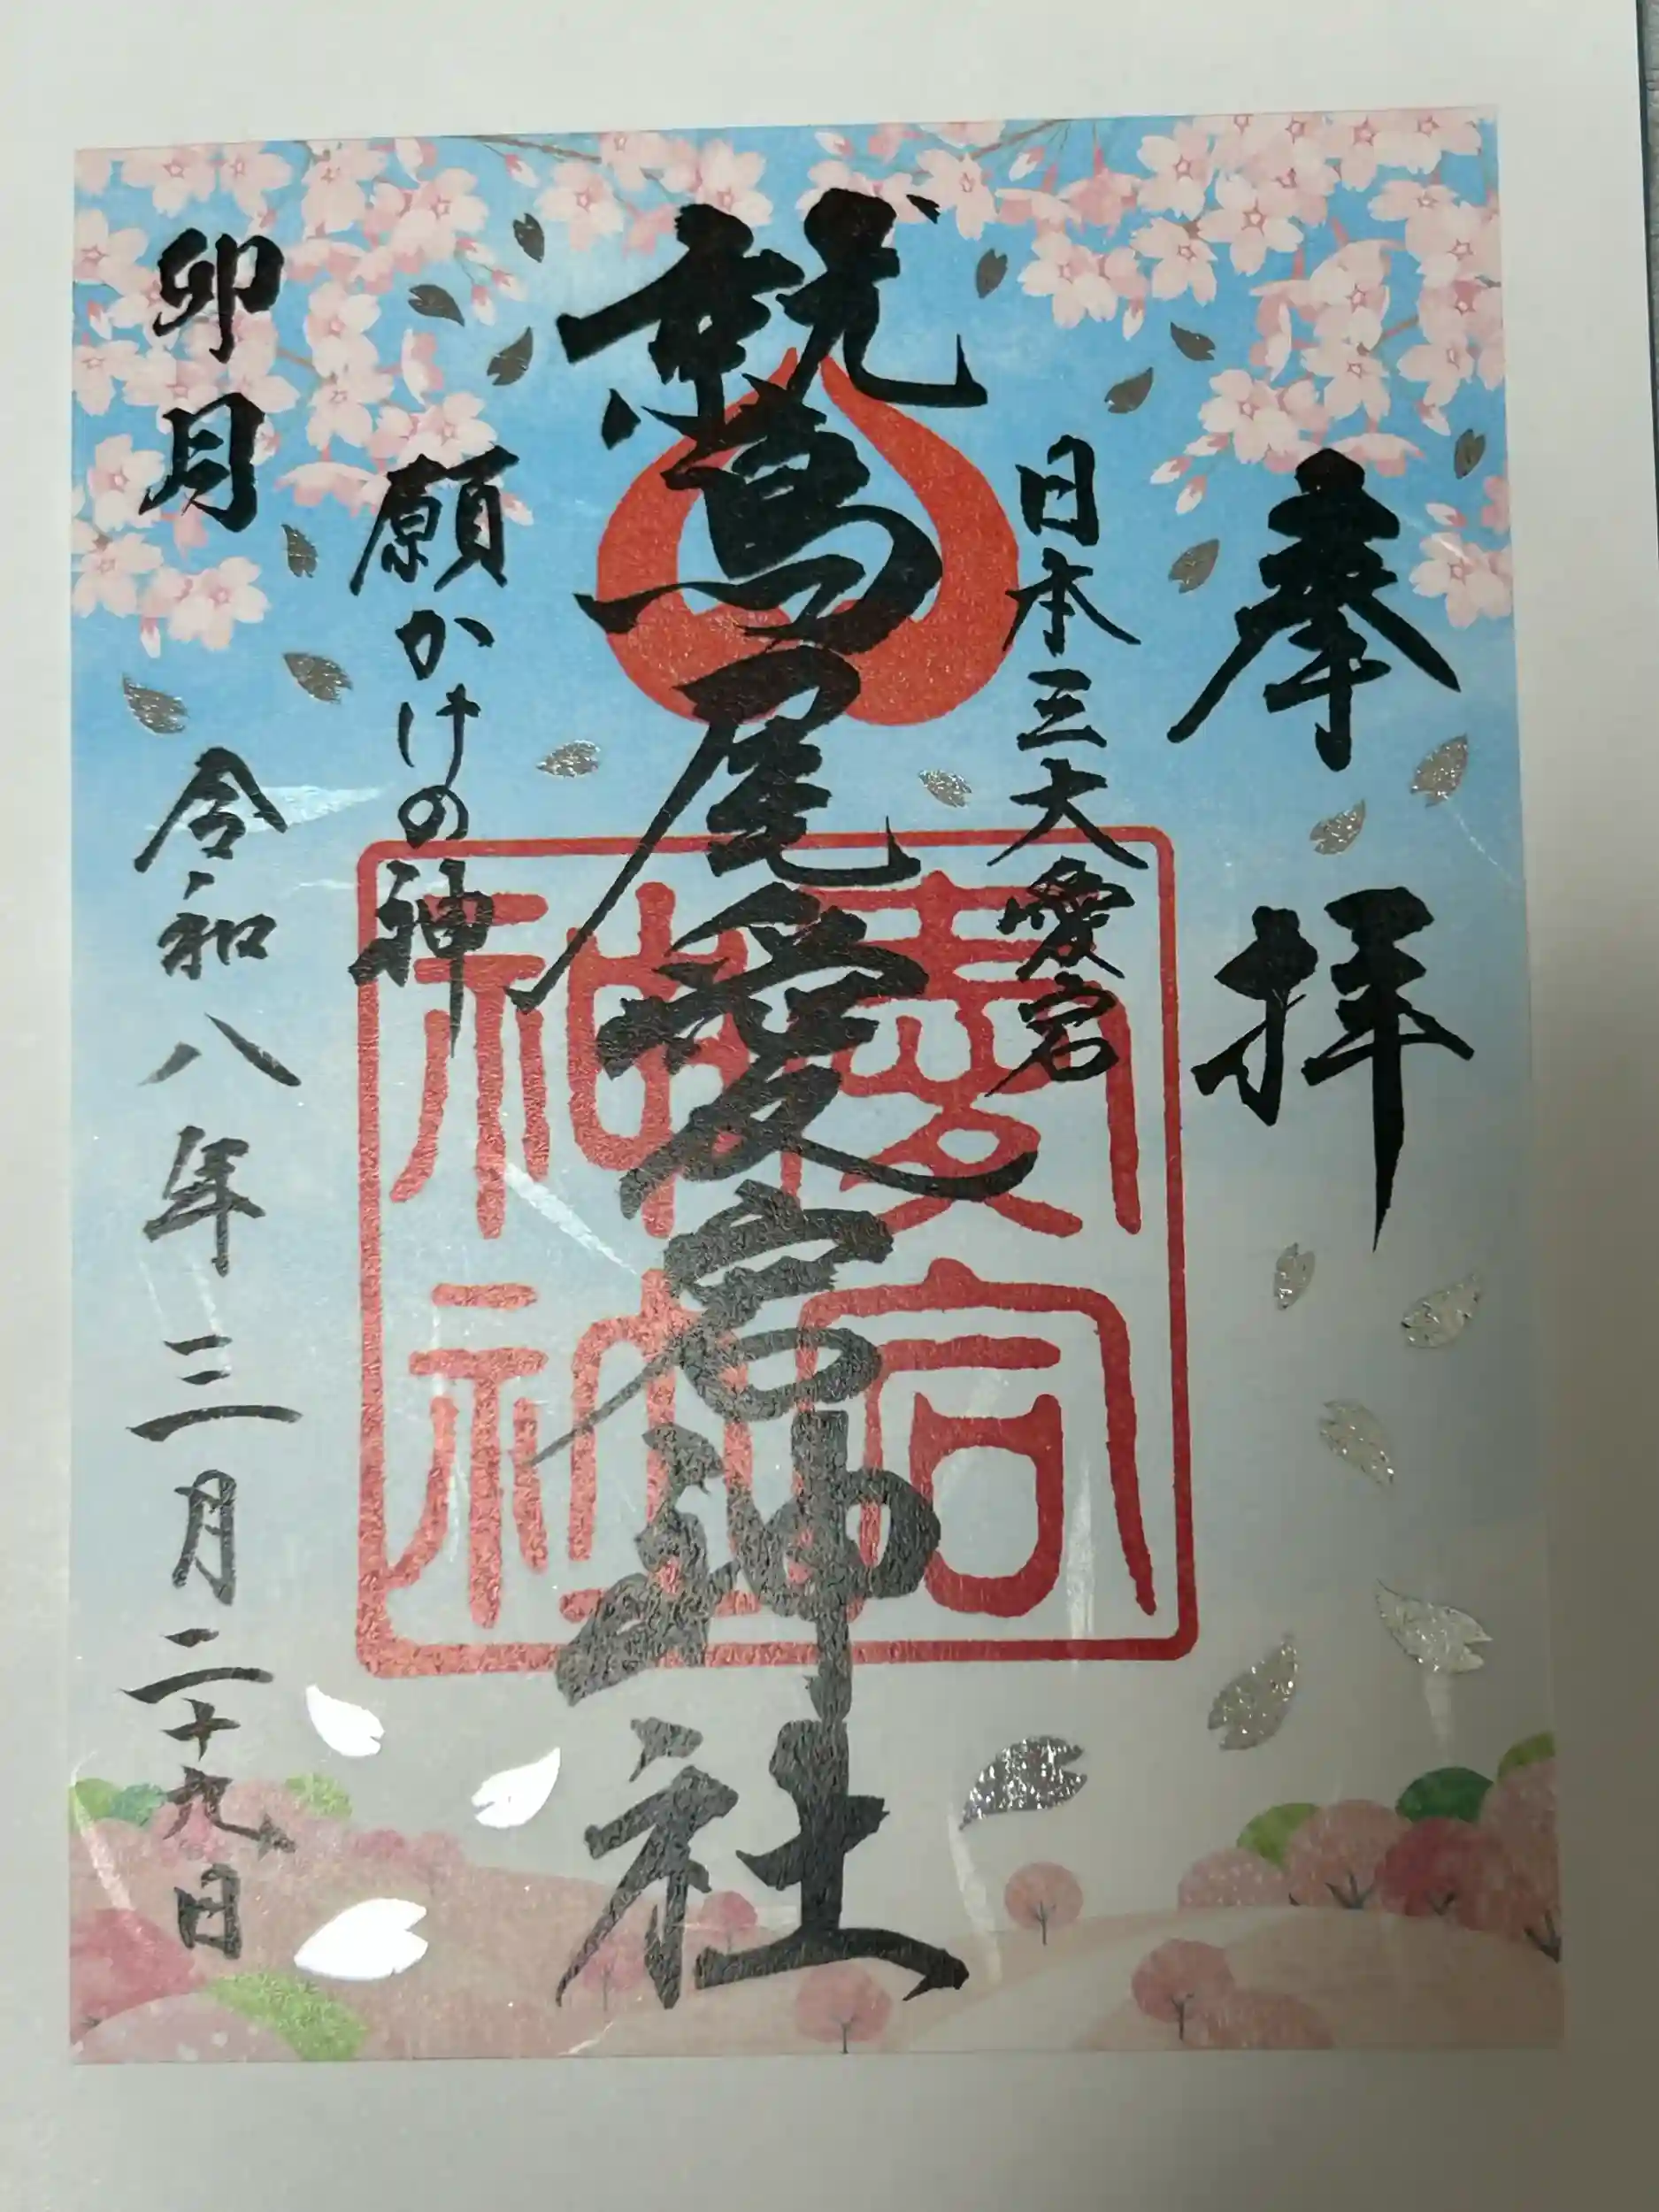 奉拝
日本三大愛宕
鷲尾愛宕神社
愛宕
神社
願かけの神
卯月
令和八年三月二十九日